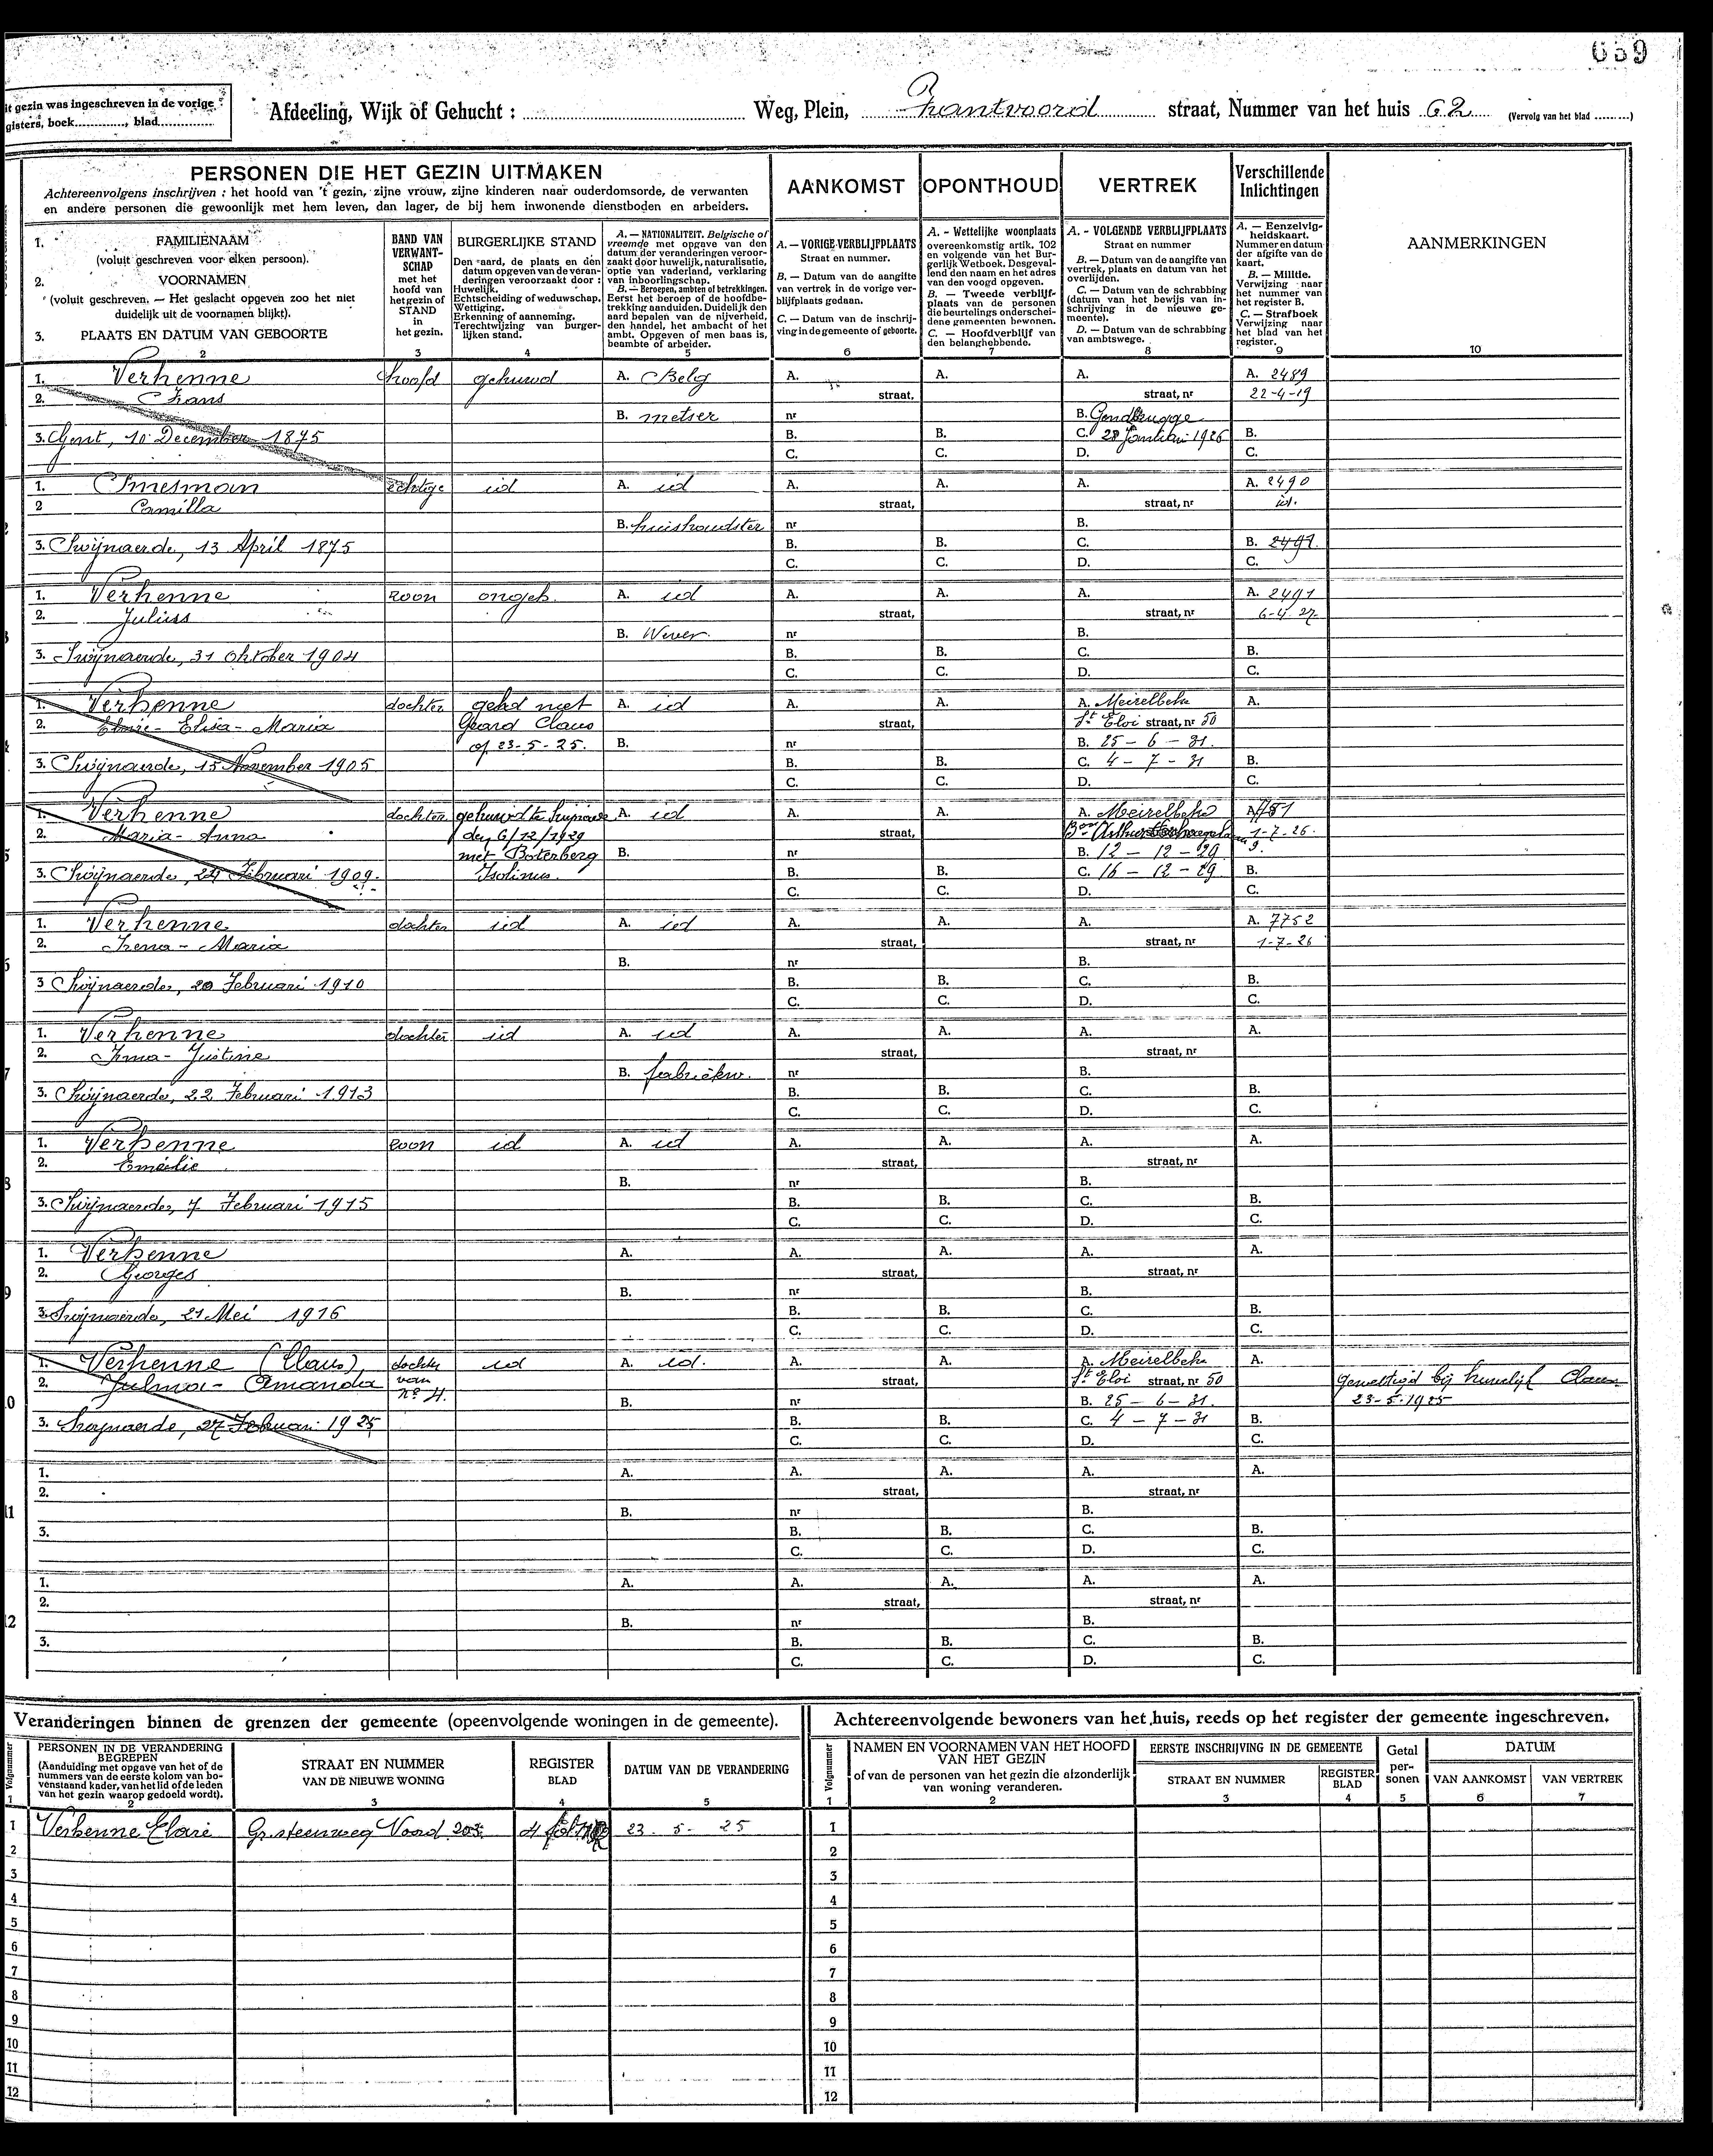 639
it gezin was ingeschreven in de vorige
gisters, boek............, blad..............
Afdeeling, Wijk of Gehucht : .......... Weg, Plein, Zantvoord straat, Nummer van het huis 62 (Vervolg van het blad .........)
PERSONEN DIE HET GEZIN UITMAKEN
Achtereenvolgens inschrijven : het hoofd van 't gezin, zijne vrouw, zijne kinderen naar ouderdomsorde, de verwanten
en andere personen die gewoonlijk met hem leven, dan lager, de bij hem inwonende dienstboden en arbeiders.
AANKOMST
OPONTHOUD
VERTREK
Verschillende
Inlichtingen
1. FAMILIENAAM
(voluit geschreven voor elken persoon).
2. VOORNAMEN
(voluit geschreven. — Het geslacht opgeven zoo het niet
duidelijk uit de voornamen blijkt).
3. PLAATS EN DATUM VAN GEBOORTE
2
BAND VAN
VERWANT-
SCHAP
met het
hoofd van
het gezin of
STAND
in
het gezin.
3
BURGERLIJKE STAND
Den aard, de plaats en den
datum opgeven van de veran-
deringen veroorzaakt door :
Huwelijk.
Echtscheiding of weduwschap.
Wettiging.
Erkenning of aanneming.
Terechtwijzing van burger-
lijken stand.
4
A. — NATIONALITEIT. Belgische of
vreemde met opgave van den
datum der veranderingen veroor-
zaakt door huwelijk, naturalisatie,
optie van vaderland, verklaring
van inboorlingschap.
B. — Beroepen, ambten of betrekkingen.
Eerst het beroep of de hoofdbe-
trekking aanduiden. Duidelijk den
aard bepalen van de nijverheid,
den handel, het ambacht of het
ambt. Opgeven of men baas is,
beambte of arbeider.
5
A. — VORIGE VERBLIJFPLAATS
Straat en nummer.
B. — Datum van de aangifte
van vertrek in de vorige ver-
blijfplaats gedaan.
C. — Datum van de inschrij-
ving in de gemeente of geboorte.
6
A. - Wettelijke woonplaats
overeenkomstig artik. 102
en volgende van het Bur-
gerlijk Wetboek. Desgeval-
lend den naam en het adres
van den voogd opgeven.
B. — Tweede verblijf-
plaats van de personen
die beurtelings onderschei-
dene gemeenten bewonen.
C. — Hoofdverblijf van
den belanghebbende.
7
A. - VOLGENDE VERBLIJFPLAATS
Straat en nummer
B. — Datum van de aangifte van
vertrek, plaats en datum van het
overlijden.
C. — Datum van de schrabbing
(datum van het bewijs van in-
schrijving in de nieuwe ge-
meente).
D. — Datum van de schrabbing
van ambtswege.
8
A. — Eenzelvig-
heidskaart.
Nummer en datum
der afgifte van de
kaart.
B. — Militie.
Verwijzing naar
het nummer van
het register B.
C. — Strafboek
Verwijzing naar
het blad van het
register.
9
AANMERKINGEN
10
1. Verhenne hoofd gehuwd A. Belg A. A. A. A. 2489
2. Frans straat, straat, nr 22-4-19
B. metser nr B. Gendbrugge
3. Gent, 10 December 1875 B. B. C. 28 Januari 1926 B.
C. C. D. C.
1. Smesman echtge id A. id A. A. A. A. 2490
2 Camilla straat, straat, nr id.
B. huishoudster nr B.
3. Swijnaerde, 13 April 1875 B. B. C. B. 2491
C. C. D. C.
1. Verhenne zoon ongeh. A. id A. A. A. A. 2491
2. Juliuss straat, straat, nr 6-4-27
B. Wever. nr B.
3. Swijnaerde, 31 Oktober 1904 B. B. C. B.
C. C. D. C.
1. Verhenne dochter gehd met A. id A. A. A. Meirelbeke A.
2. Clarie - Elisa - Maria Gerard Claus straat, St Eloi straat, nr 50
op 23-5-25. B. nr B. 25 - 6 - 31.
3. Swijnaerde, 15 November 1905 B. B. C. 4 - 7 - 31 B.
C. C. D. C.
1. Verhenne dochter gehuwd te A. id A. A. A. Meirelbeke A.
2. Maria - Anna den 6/12/1929 straat, 1-7-26.
met Boterberg B. nr B. 12 - 12 - 29
3. Swijnaerde, 24 Februari 1909. Isolinus. B. B. C. 16 - 12 - 29 B.
C. C. D. C.
1. Verhenne dochter id A. id A. A. A. A. 7752
2. Irena - Maria straat, straat, nr 1-7-26
B. nr B.
3 Swijnaerde, 20 Februari 1910 B. B. C. B.
C. C. D. C.
1. Verhenne dochter id A. id A. A. A. A.
2. Irma - Justine straat, straat, nr
B. fabriekw. nr B.
3. Swijnaerde, 22 Februari 1913 B. B. C. B.
C. C. D. C.
1. Verhenne zoon id A. id A. A. A. A.
2. Emielie straat, straat, nr
B. nr B.
3. Swijnaerde, 7 Februari 1915 B. B. C. B.
C. C. D. C.
1. Verhenne A. A. A. A. A.
2. Georges straat, straat, nr
B. nr B.
3. Swijnaerde, 21 Mei 1916 B. B. C. B.
C. C. D. C.
1. Verhenne (Claus) dochter id A. id. A. A. A. Meirelbeke A.
2. Julma - Amanda van straat, St Eloi straat, nr 50 gewettigd bij huwelijk Claus
n° 4. B. nr B. 25 - 6 - 31. 23-5-1925
3. Swijnaerde, 27 Februari 1925 B. B. C. 4 - 7 - 31 B.
C. C. D. C.
1. A. A. A. A. A.
2. straat, straat, nr
11 B. nr B.
3. B. B. C. B.
C. C. D. C.
1. A. A. A. A. A.
2. straat, straat, nr
12 B. nr B.
3. B. B. C. B.
C. C. D. C.
Veranderingen binnen de grenzen der gemeente (opeenvolgende woningen in de gemeente).
Volgnummer
1
PERSONEN IN DE VERANDERING
BEGREPEN
(Aanduiding met opgave van het of de
nummers van de eerste kolom van bo-
venstaand kader, van het lid of de leden
van het gezin waarop gedoeld wordt).
2
STRAAT EN NUMMER
VAN DE NIEUWE WONING
3
REGISTER
BLAD
4
DATUM VAN DE VERANDERING
5
1 Verhenne Clarie Gr. steenweg Voord 203. 4 23 - 5 - 25
2
3
4
5
6
7
8
9
10
11
12
Achtereenvolgende bewoners van het huis, reeds op het register der gemeente ingeschreven.
Volgnummer
1
NAMEN EN VOORNAMEN VAN HET HOOFD
VAN HET GEZIN
of van de personen van het gezin die afzonderlijk
van woning veranderen.
2
EERSTE INSCHRIJVING IN DE GEMEENTE
STRAAT EN NUMMER
3
REGISTER
BLAD
4
Getal
per-
sonen
5
DATUM
VAN AANKOMST
6
VAN VERTREK
7
1
2
3
4
5
6
7
8
9
10
11
12